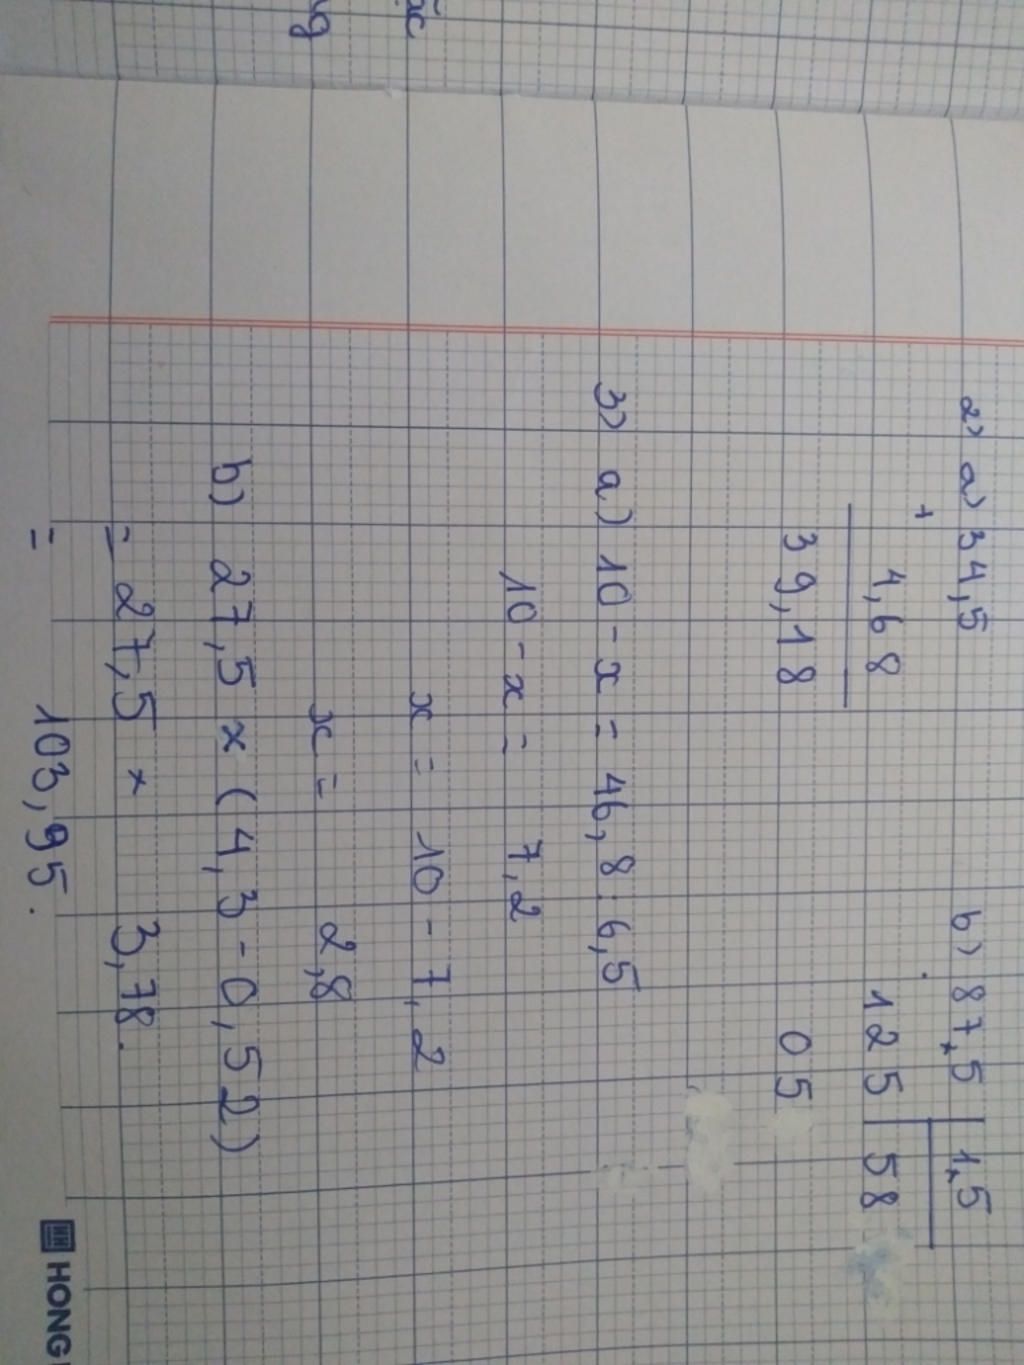 ng
ặc
2) a) 34,5
+
4,68
39,18
b) 87,5 1,5
125 58
05
3) a) 10 - x = 46,8 : 6,5
10 - x = 7,2
x = 10 - 7,2
x = 2,8
b) 27,5 x (4,3 - 0,52)
= 27,5 x 3,78.
= 103,95.
HONG